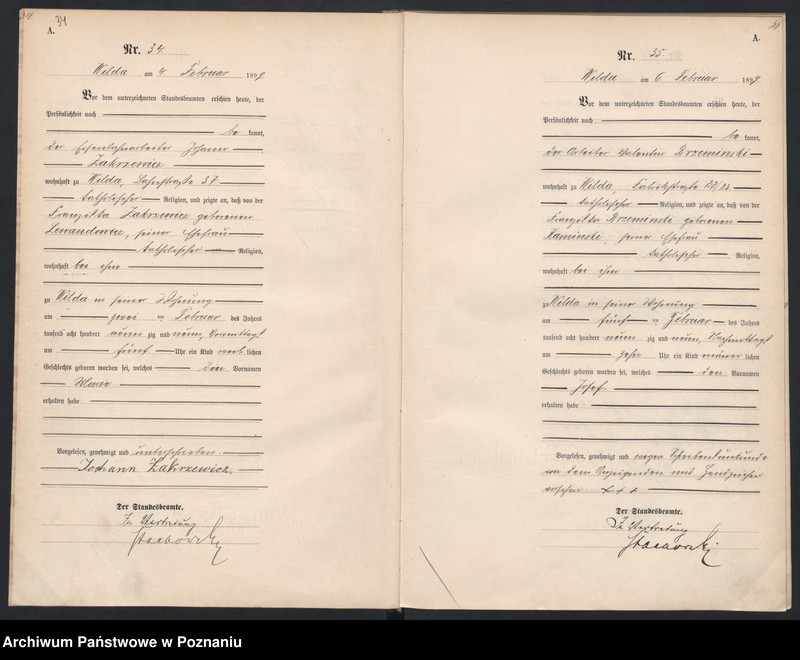 34
A.
Nr. 34.
Wilda am 4 Februar 1899
Vor dem unterzeichneten Standesbeamten erschien heute, der
Persönlichkeit nach
be kannt,
der Eisenbahnarbeiter Johann
Zakrzewicz
wohnhaft zu Wilda, Bahnstraße 37
katholischer Religion, und zeigte an, daß von der
Franziska Zakrzewicz geborenen
Lewandowicz, seiner Ehefrau
katholischer Religion,
wohnhaft bei ihm
zu Wilda in seiner Wohnung
am zwei ten Februar des Jahres
tausend acht hundert neun zig und neun, Vormittags
um fünf Uhr ein Kind weib lichen
Geschlechts geboren worden sei, welches den Vornamen
Maria
erhalten habe
Vorgelesen, genehmigt und unterschrieben.
Johann Zakrzewicz
Der Standesbeamte.
In Vertretung
A.
Nr. 35.
Wilda am 6 Februar 1899
Vor dem unterzeichneten Standesbeamten erschien heute, der
Persönlichkeit nach
be kannt,
der Arbeiter Valentin Krzeminski
wohnhaft zu Wilda, Fabrikstraße 22/23
katholischer Religion, und zeigte an, daß von der
Franziska Krzeminski geborenen
Kaminski, seiner Ehefrau
katholischer Religion,
wohnhaft bei ihm
zu Wilda in seiner Wohnung
am fünf ten Februar des Jahres
tausend acht hundert neun zig und neun, Nachmittags
um zehn Uhr ein Kind männ lichen
Geschlechts geboren worden sei, welches den Vornamen
Josef
erhalten habe
Vorgelesen, genehmigt und wegen Schreibensunkunde
von dem Anzeigenden mit Handzeichen
versehen + + +
Der Standesbeamte.
In Vertretung
Archiwum Państwowe w Poznaniu